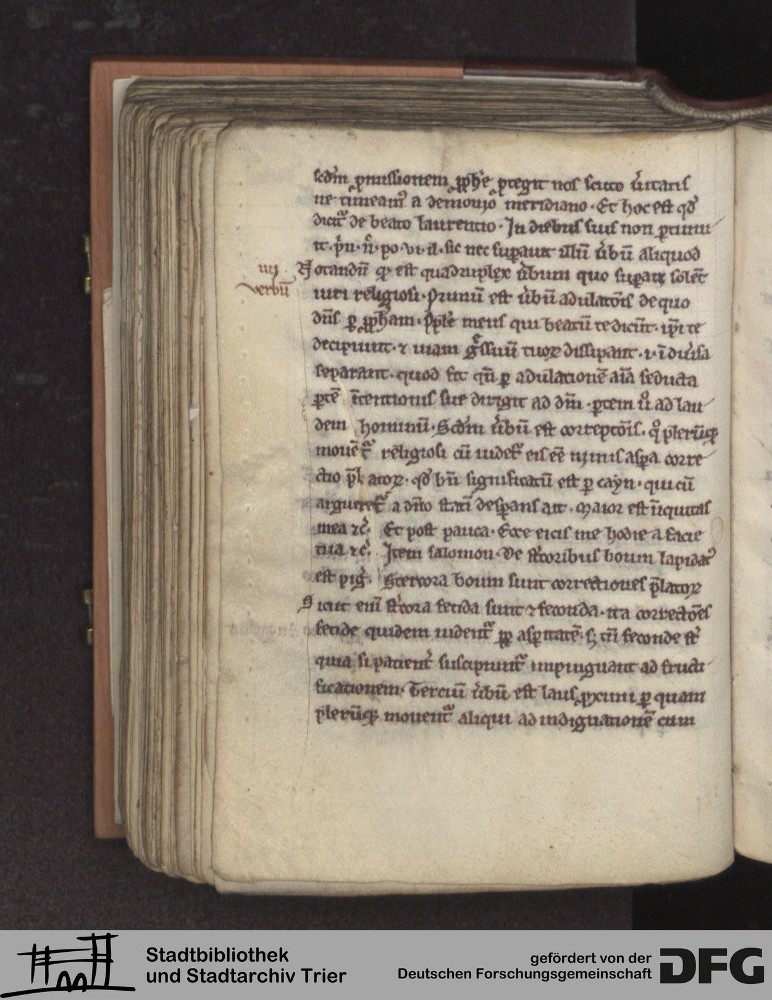 scdm ꝓmissionem ꝓphe ꝓtegit nos scuto ūitatis
ne timeam a demonio meridiano · Et hoc est qd
dicit de beato laurentio · In diebus suis non ptimu
it · pn · n · po · vi · il · sic nec supauit illū ūbū aliquod
iiij
verbū
Notandū qͥ est quadruplex ūbum quo supari solēt
viri religiosi · Primū est ūbū adulatōis de quo
dns ꝑ ꝓpham · Pple meus qui beatū te dicūt · ipi te
decipiunt · ⁊ uiam gssuū tuoꝝ dissipant · i · ī diūsa
separant · quod fit qn ꝑ adulationē aīa seducta
ꝑtē ītentionis sue dirigit ad dm · ꝑtem ū ad lau
dem hominū · Scdm ūbū est correptōis · qͦ pleruqꝫ
mouēt religiosi cū uidet eis eē nimis aspa corre
ctio platoꝝ · qd bn significatū est ꝑ cayn · qui cū
argueret a dno stati despans ait · Maior est iniquitas
mea ⁊c · Et post pauca · Ecce eicis me hodie a facie
tua ⁊c · Item salomon · De stcoribus boum lapidat
est pig · Stercora boum sunt correctiones platoꝝ
Sicut eni stcora fetida sunt ⁊ feconda · ita correctōes
fetide quidem uident ꝓp aspitatē · s tn feconde st
quia si patient suscipiunt impinguant ad fructi
ficationem · Terciū ūbū est laus ꝓximi ꝑ quam
pleruqꝫ mouent aliqui ad indignationē cum
Stadtbibliothek
und Stadtarchiv Trier
gefördert von der
Deutschen Forschungsgemeinschaft
DFG